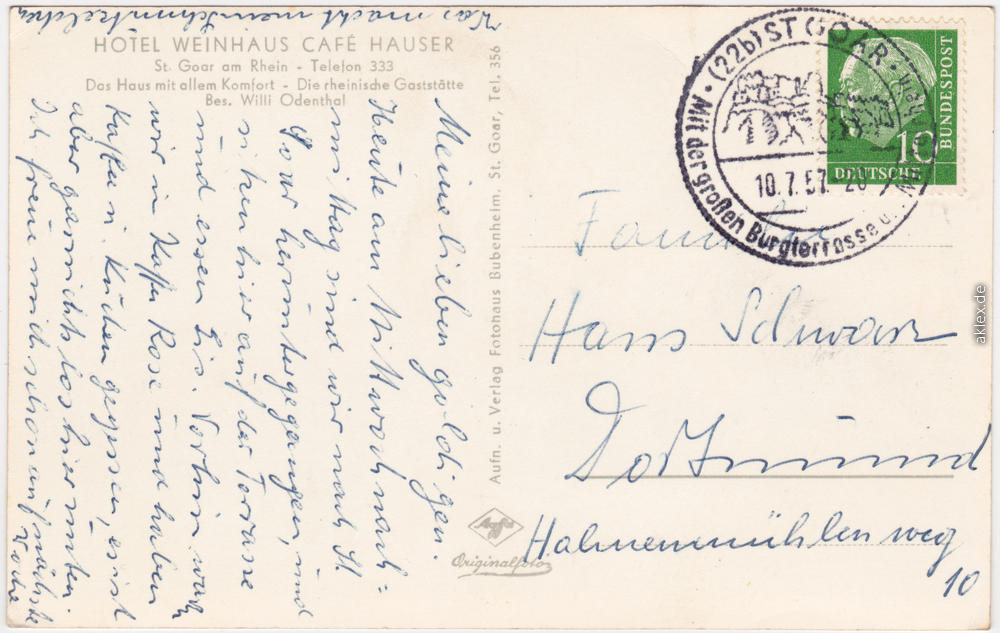 Was macht mein Schnuckelchen
HOTEL WEINHAUS CAFÉ HAUSER
St. Goar am Rhein - Telefon 333
Das Haus mit allem Komfort - Die rheinische Gaststätte
Bes. Willi Odenthal
Meine lieben goldigen.
Heute am Mittwoch nach=
mittag sind wir nach St.
Goar heruntergegangen, und
sitzen hier auf der Terrasse
und essen Eis. Vorhin waren
wir in Kaffee Rose und haben
Kaffee u. Kuchen gegessen, es ist
aber gar nichts los hier unten.
Ich freue mich schon auf nächste
Woche
Aufn. u. Verlag Fotohaus Bubenheim, St. Goar, Tel. 356
Agfa
Originalfoto
(22b) ST GOAR
Mit der großen Burgterrasse u.
10.7.57.-20
10
DEUTSCHE
BUNDESPOST
Familie
Hans Schwarz
Dortmund
Hahnenmühlenweg
10
aklex.de